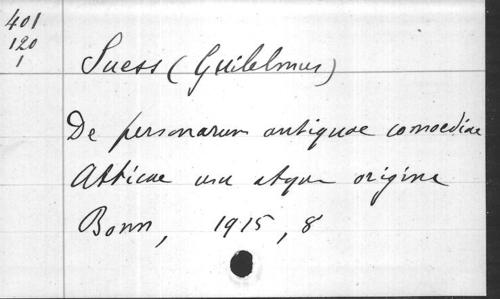 401
120
1
Suess (Guilelmus)
De personarum antiquae comoediae
Atticae usu atque origine
Bonn, 1915, 8